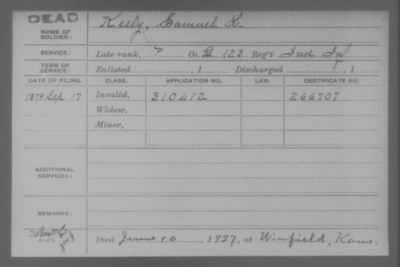 DEAD
NAME OF SOLDIER: Keely, Samuel L.
SERVICE: Late rank, P Co. 123 Reg't Ind Inf
TERM OF SERVICE: Enlisted , 1 Discharged , 1
DATE OF FILING. CLASS. APPLICATION NO. LAW. CERTIFICATE NO.
1879 Sep 17 Invalid, 310412 266707
Widow,
Minor,
ADDITIONAL SERVICES:
REMARKS:
Died June 10, 1927, at Winfield, Kans.